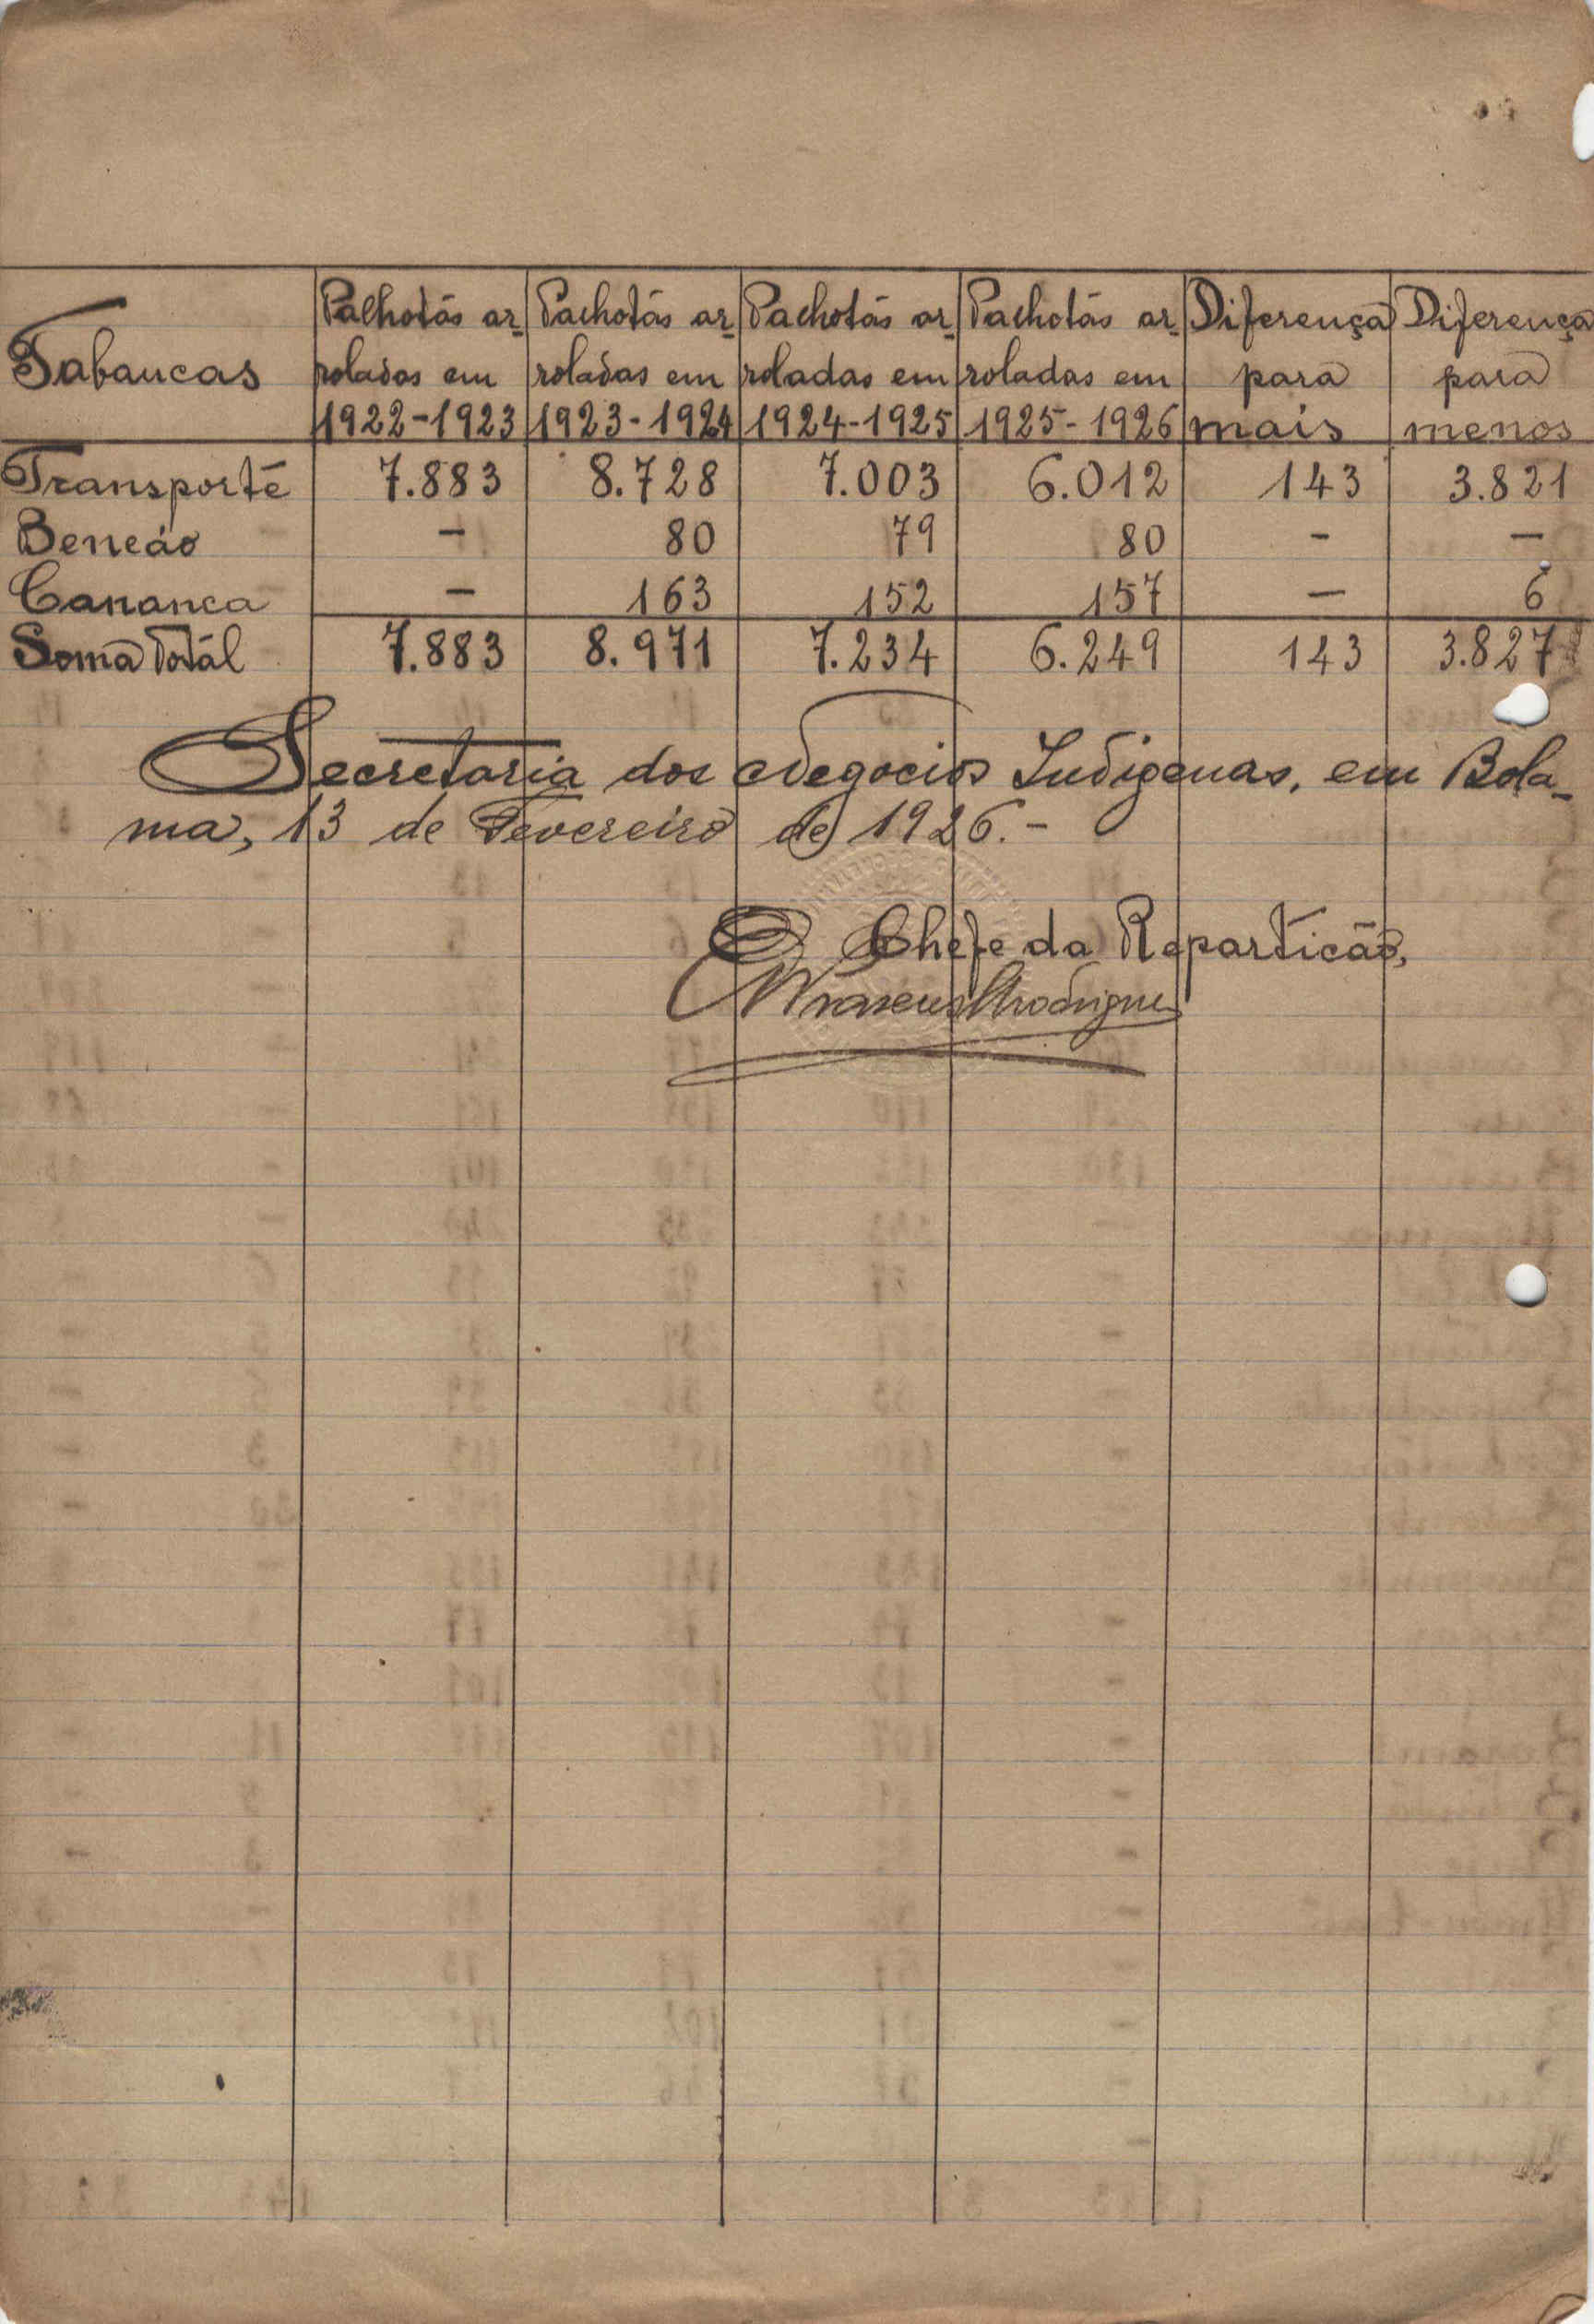 Tabancas | Palhotás ar- | Palhotás ar- | Palhotás ar- | Palhotás ar- | Diferença | Diferença
roladas em | roladas em | roladas em | roladas em | para | para
1922-1923 | 1923-1924 | 1924-1925 | 1925-1926 | mais | menos
Transporte | 7.883 | 8.728 | 7.003 | 6.012 | 143 | 3.821
Beneáo | - | 80 | 79 | 80 | - | -
Cananca | - | 163 | 152 | 157 | - | 6
Soma Totál | 7.883 | 8.971 | 7.234 | 6.249 | 143 | 3.827
Secretaria dos Negocios Indigenas, em Bola-
ma, 13 de Fevereiro de 1926.-
O Chefe da Reparticão,